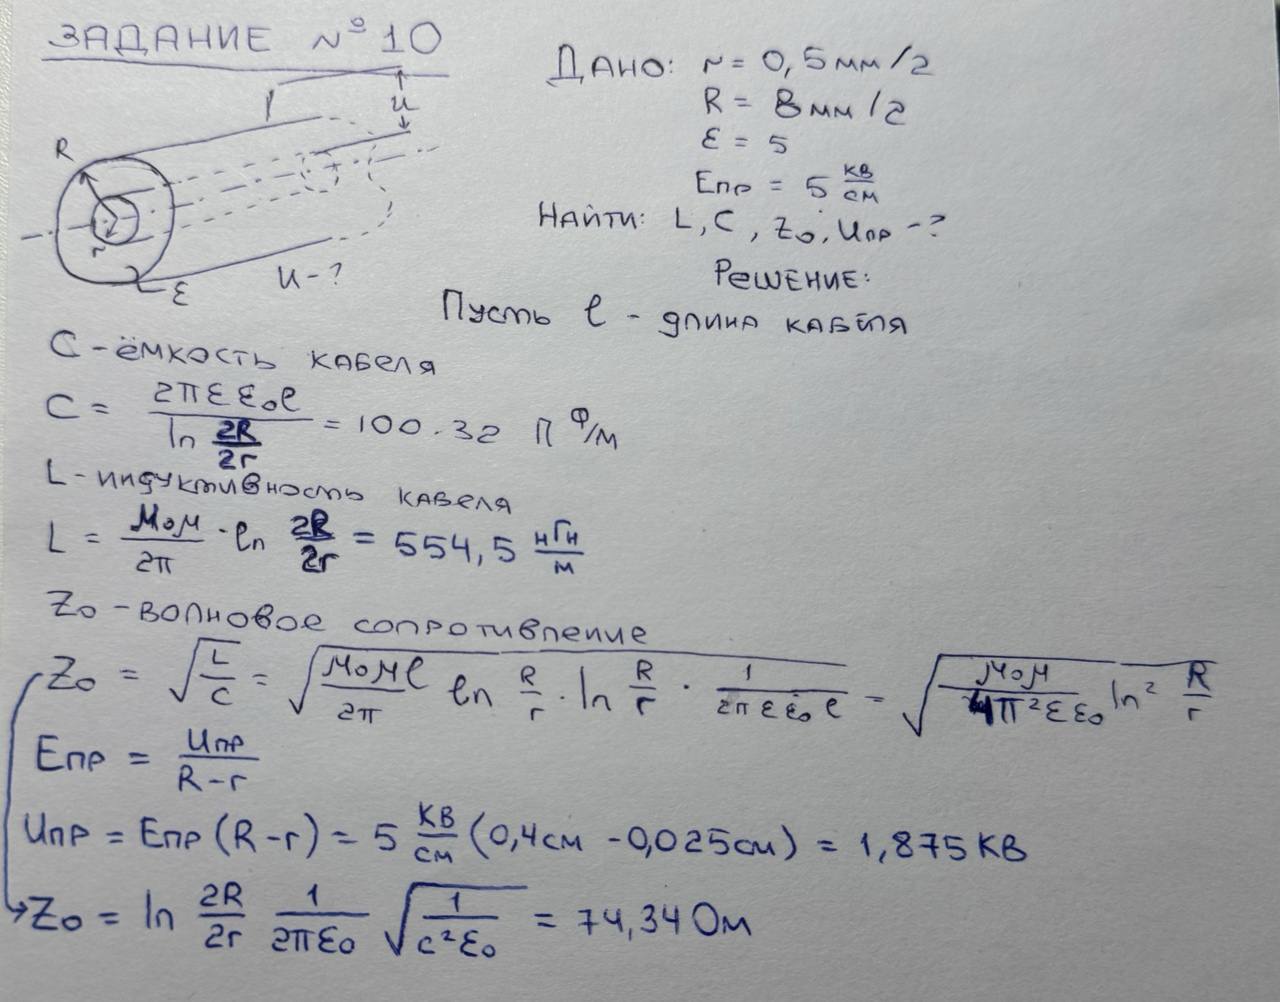 ЗАДАНИЕ №10
ДАНО: r = 0,5мм/2
R = 8мм/2
ε = 5
Eпр = 5 кВ/см
НАЙТИ: L, C, Z₀, Uпр -?
R
r
ε
U
U-?
РЕШЕНИЕ:
Пусть l - длина кабеля
C - ёмкость кабеля
C = 2πεε₀l / ln 2R/2r = 100.32 п Ф/м
L - индуктивность кабеля
L = μ₀μ/2π · ln 2R/2r = 554,5 нГн/м
Z₀ - волновое сопротивление
Z₀ = √(L/C) = √(μ₀μl/2π ln R/r · ln R/r · 1/2πεε₀l) = √(μ₀μ/4π²εε₀ ln² R/r)
Eпр = Uпр/R-r
Uпр = Eпр (R-r) = 5 кВ/см (0,4см - 0,025см) = 1,875 кВ
Z₀ = ln 2R/2r 1/2πε₀ √(1/c²ε₀) = 74,34 Ом